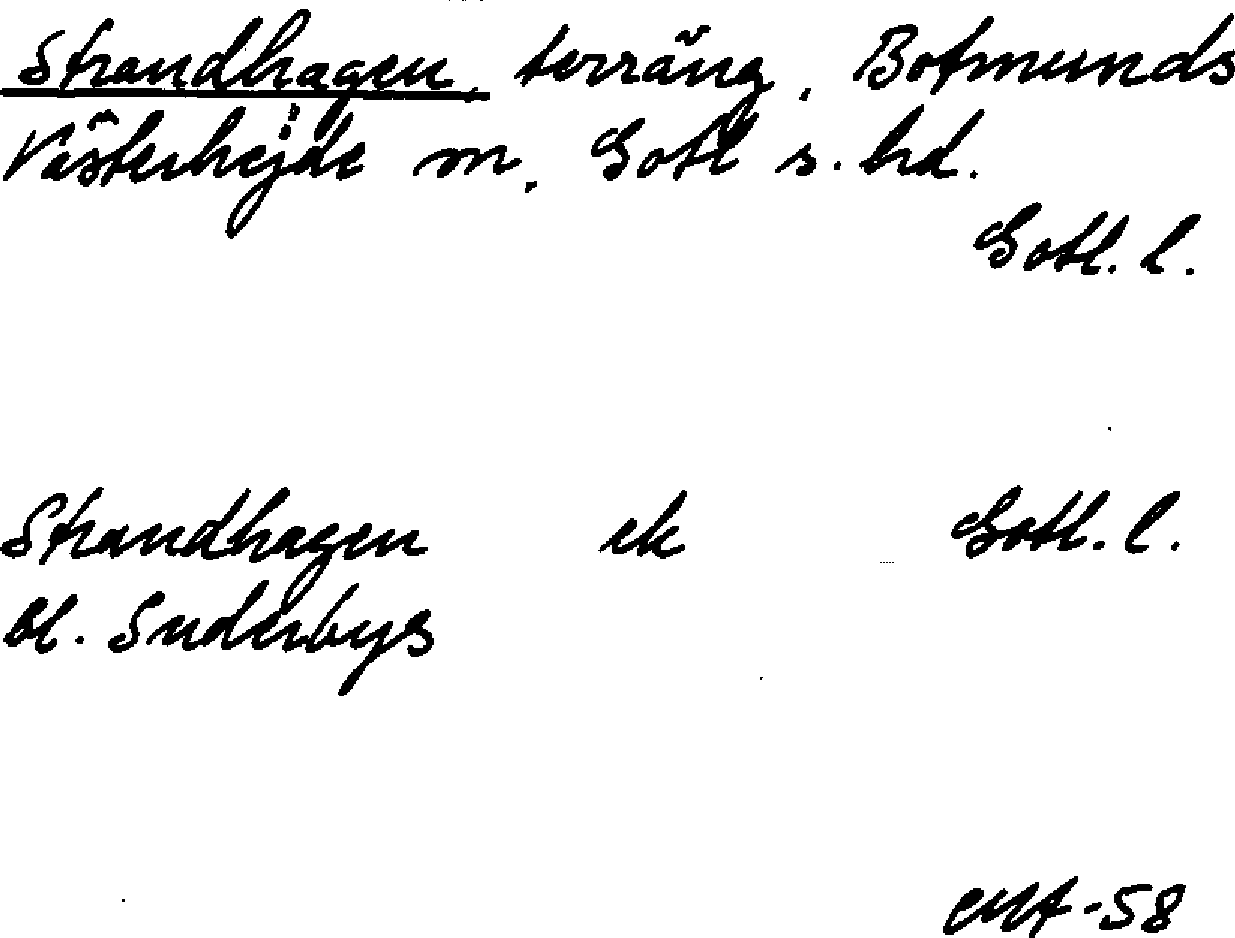 Strandhagen, terräng, Botmunds
Västerhejde sn, Gotl s. hd.
Gotl. l.
Strandhagen ek Gotl. l.
bl. Suderbys
-58